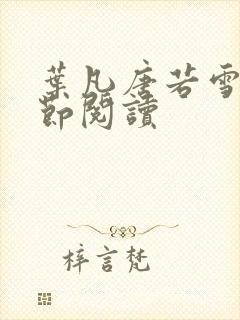 葉凡唐若雪
節閱讀
梓言梵